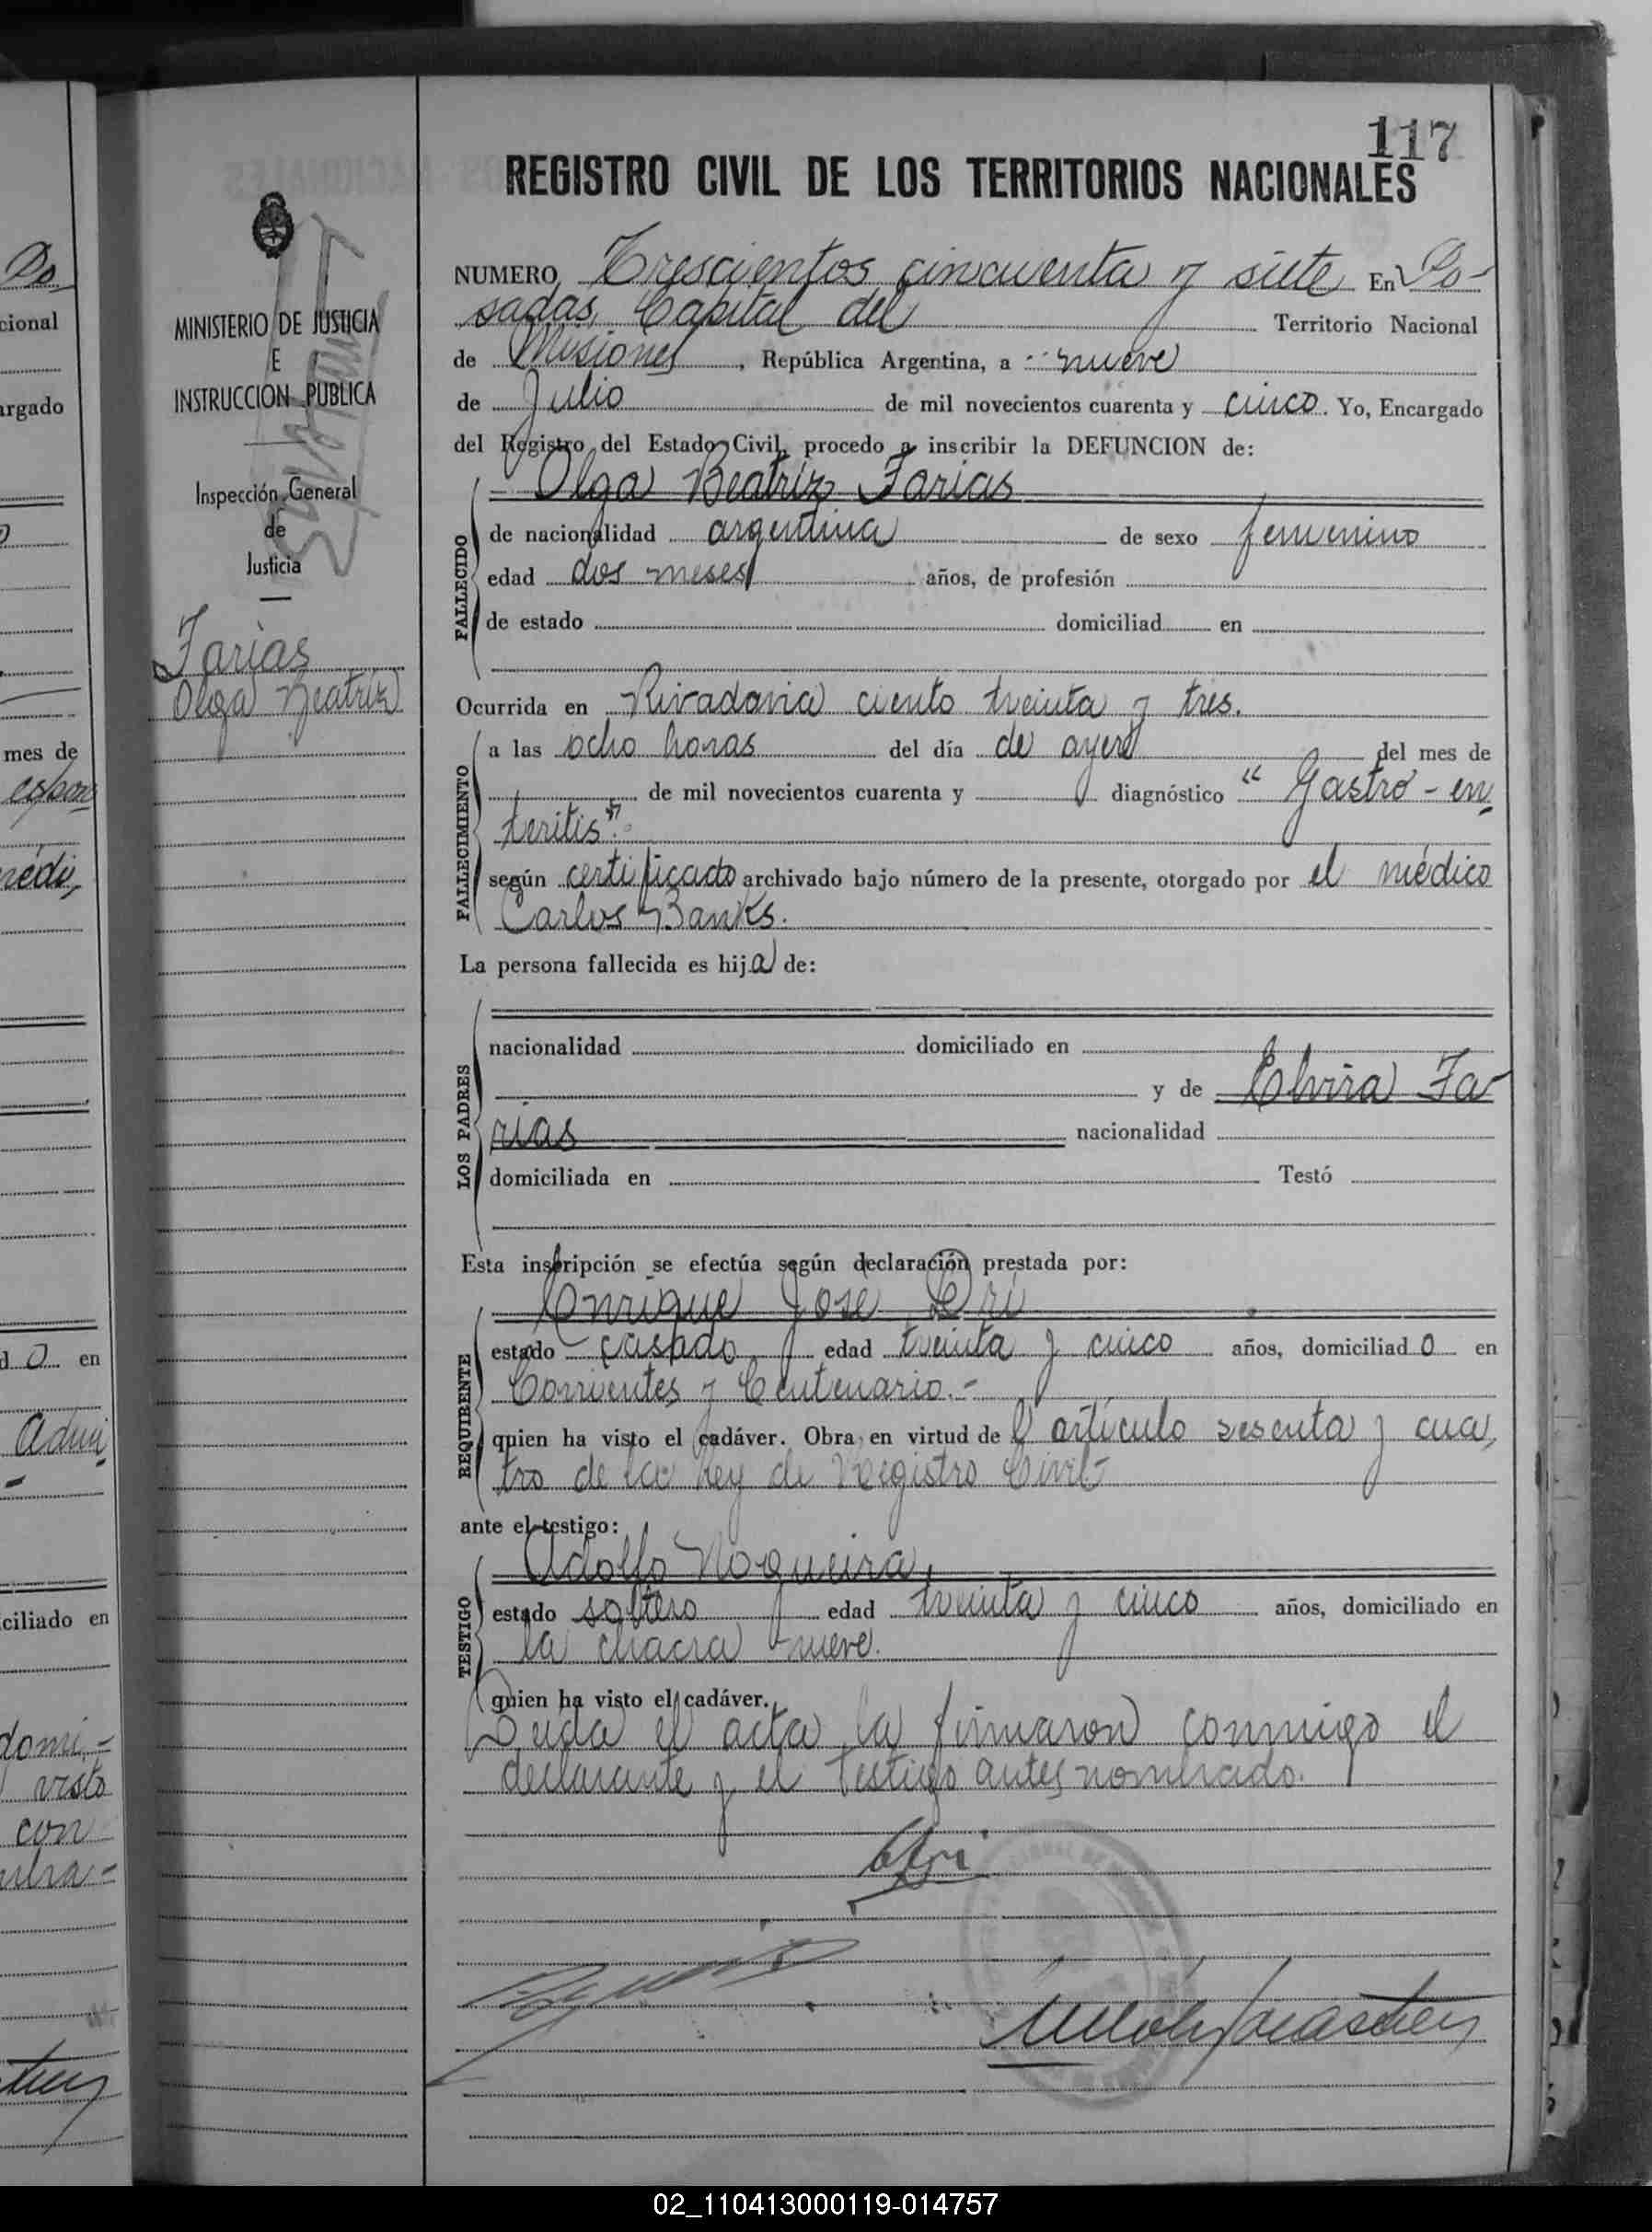 117
REGISTRO CIVIL DE LOS TERRITORIOS NACIONALES
MINISTERIO DE JUSTICIA
E
INSTRUCCION PUBLICA
Inspección General
de
Justicia
Farias
Olga Beatriz
NUMERO Trescientos cincuenta y siete En Po-
sadas, Capital del Territorio Nacional
de Misiones, República Argentina, a nueve
de Julio de mil novecientos cuarenta y cinco. Yo, Encargado
del Registro del Estado Civil, procedo a inscribir la DEFUNCION de:
Olga Beatriz Farias
FALLECIDO
de nacionalidad argentina de sexo femenino
edad dos meses años, de profesión
de estado domiciliad en
Ocurrida en Rivadavia ciento treinta y tres.
FALLECIMIENTO
a las ocho horas del día de ayer del mes de
de mil novecientos cuarenta y diagnóstico "Gastro-en
teritis".
según certificado archivado bajo número de la presente, otorgado por el médico
Carlos Banks.
La persona fallecida es hija de:
LOS PADRES
nacionalidad domiciliado en
y de Elvira Fa-
rias nacionalidad
domiciliada en Testó
Esta inscripción se efectúa según declaración prestada por:
Enrique Jose Ori
REQUIRENTE
estado casado edad treinta y cinco años, domiciliado en
Corrientes y Centenario.-
quien ha visto el cadáver. Obra en virtud del artículo sesenta y cua
tro de la Ley de Registro Civil-
ante el testigo:
Adolfo Nogueira,
TESTIGO
estado soltero edad treinta y cinco años, domiciliado en
la chacra nueve.
quien ha visto el cadáver.
Leída el acta, la firmaron conmigo el
declarante y el testigo antes nombrado.
02_110413000119-014757